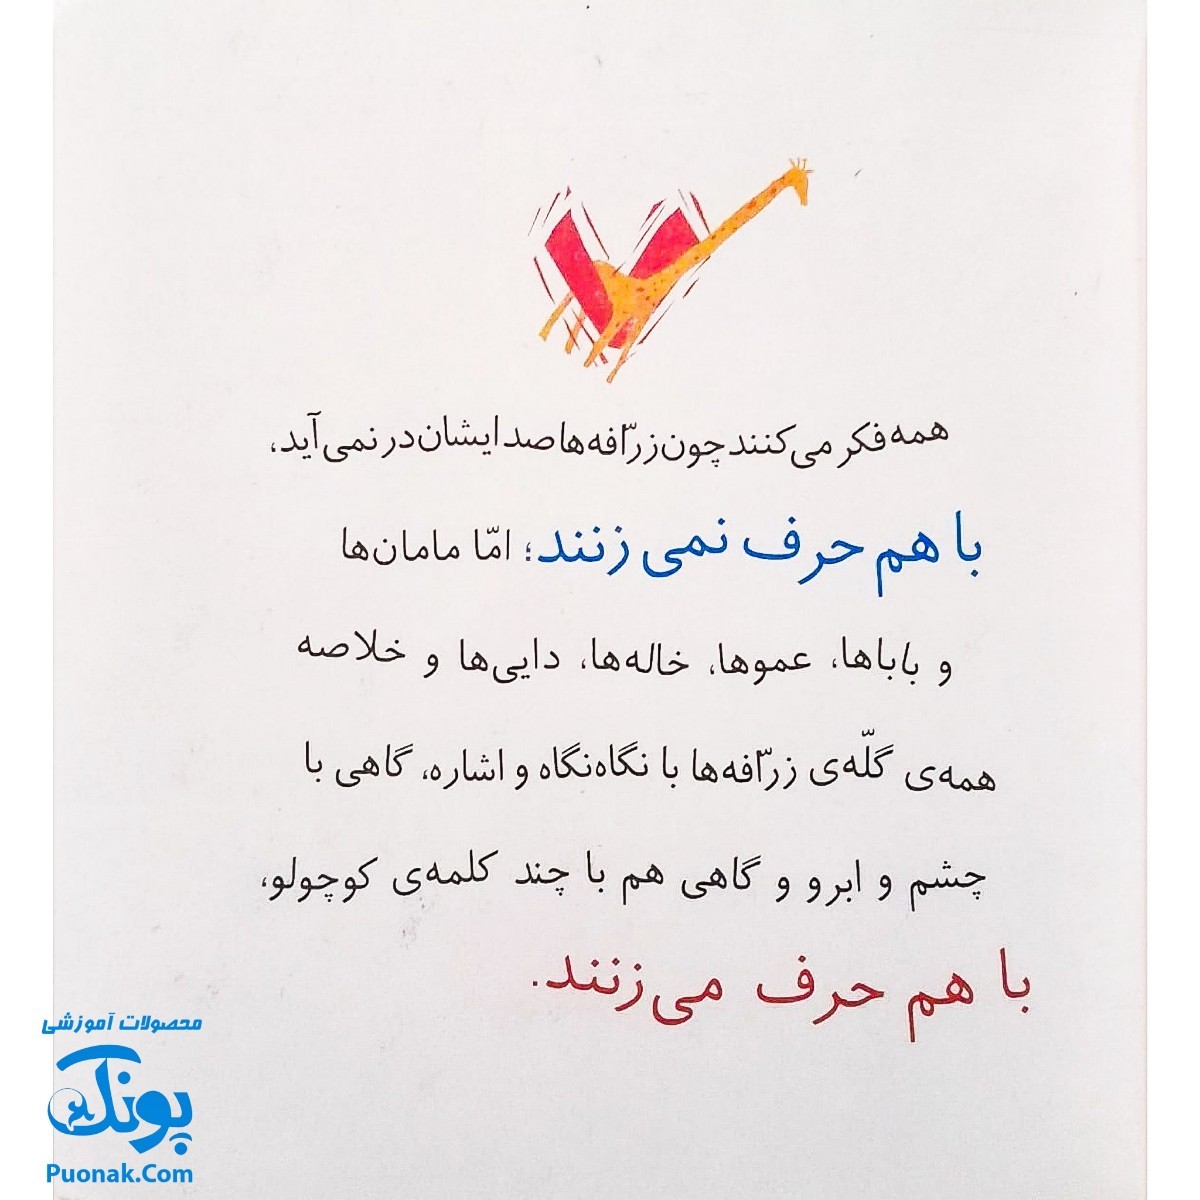 همه فکر می‌کنند چون زرّافه‌ها صدایشان در نمی‌آید،
با هم حرف نمی‌زنند؛ امّا مامان‌ها
و باباها، عموها، خاله‌ها، دایی‌ها و خلاصه
همه‌ی گلّه‌ی زرّافه‌ها با نگاه‌نگاه و اشاره، گاهی با
چشم و ابرو و گاهی هم با چند کلمه‌ی کوچولو،
با هم حرف می‌زنند.
محصولات آموزشی
پونک
Puonak.Com